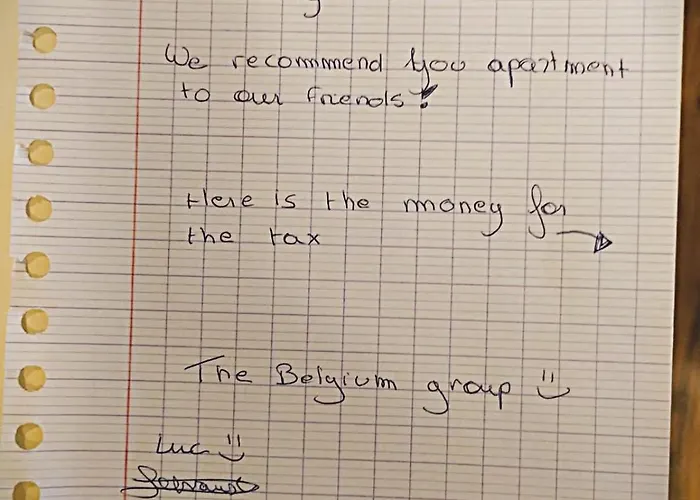 We recommend you apartment
to our friends!
Here is the money for
the tax
The Belgium group
Luc